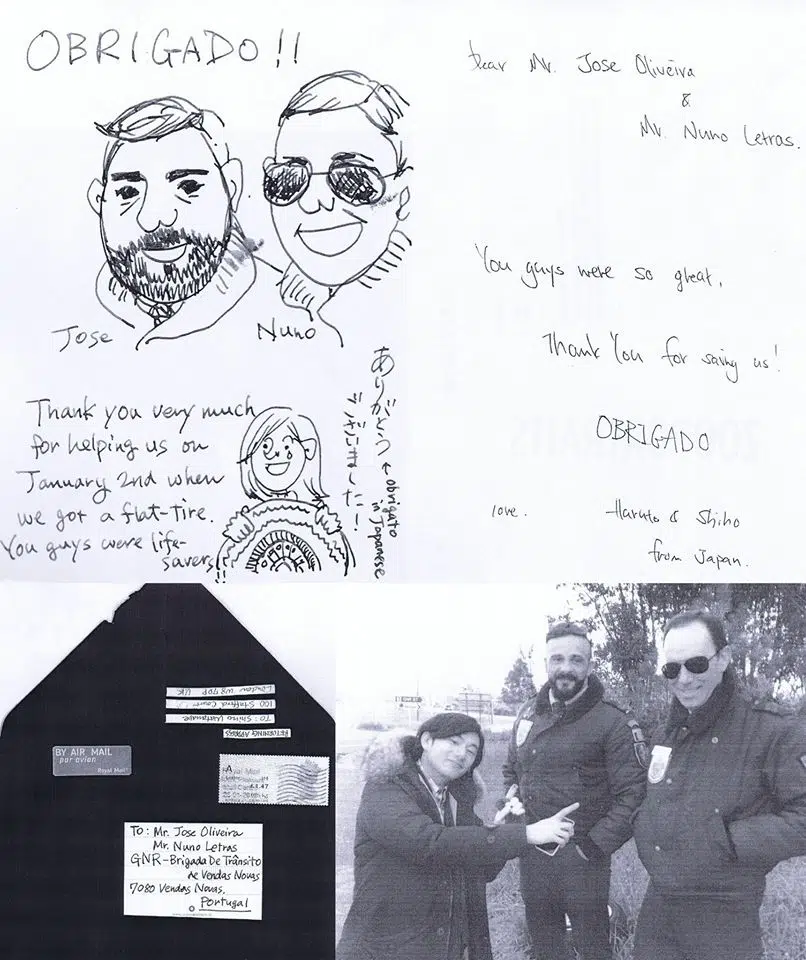 OBRIGADO!!
Jose
Nuno
Thank you very much
for helping us on
January 2nd when
we got a flat-tire.
You guys were life-
savers!!
ありがとう ← obrigato
in Japanese
ございました!
Dear Mr. Jose Oliveira
&
Mr. Nuno Letras.
You guys were so great.
Thank You for saving us!
OBRIGADO
love.
Haruto & Shiho
from Japan.
RETURNING ADDRESS
TO: Shiho
100 Stafford Court
London W8 7DP UK
BY AIR MAIL
par avion
Royal Mail
Royal Mail
£1.47
To: Mr. Jose Oliveira
Mr. Nuno Letras
GNR-Brigada De Trânsito
de Vendas Novas
7080 Vendas Novas.
Portugal